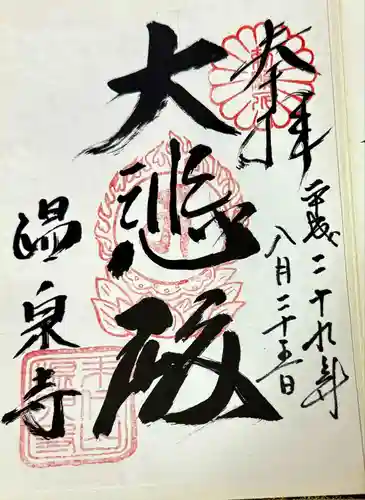 奉拝
平成二十九年
八月二十五日
大悲殿
温泉寺